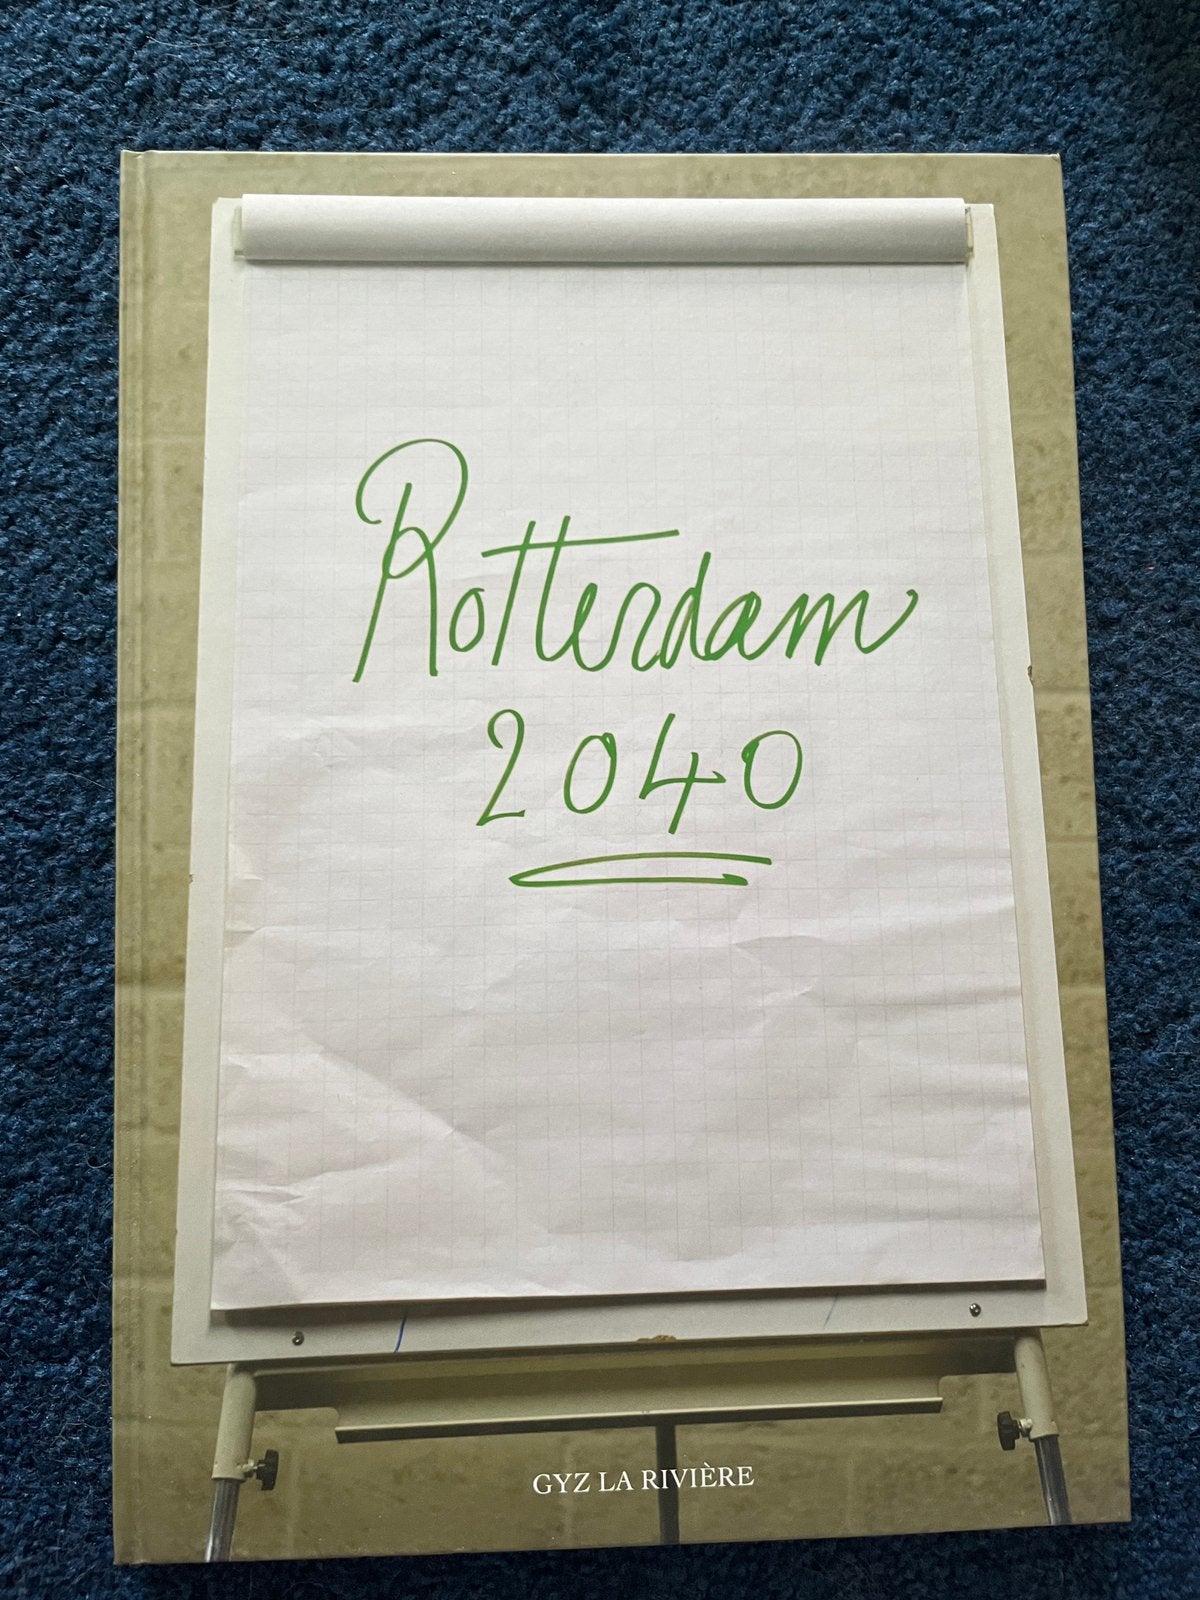 Rotterdam
2040
GYZ LA RIVIÈRE